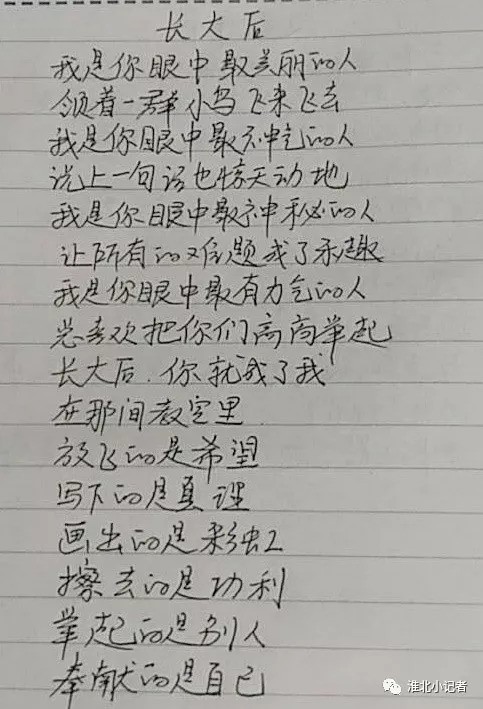 长大后
我是你眼中最美丽的人
领着一群小鸟飞来飞去
我是你眼中最神气的人
说上一句话也惊天动地
我是你眼中最神秘的人
让所有的难题成了乐趣
我是你眼中最有力气的人
总喜欢把你们高高举起
长大后.你就成了我
在那间教室里
放飞的是希望
写下的是真理
画出的是彩虹
擦去的是功利
举起的是别人
奉献的是自己
淮北小记者